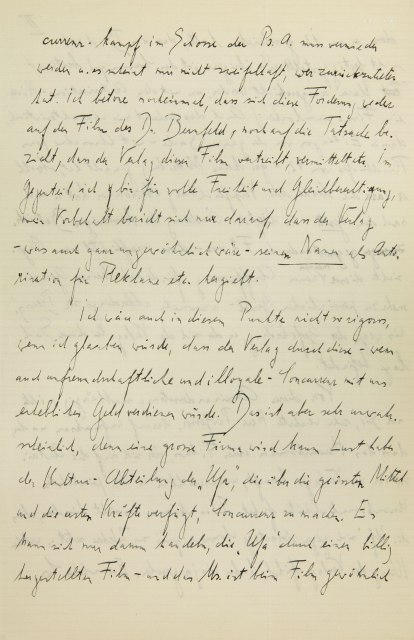 currenz-kampf im Schosse der Ps. A. muss vermieden
werden u. es scheint mir nicht zweifelhaft, wer zurückzutreten
hat. Ich betone nocheinmal, dass sich diese Forderung weder
auf den Film des Dr. Bernfeld, noch auf die Tatsache be-
zieht, dass der Verlag diesen Film vertreibt, vermittelt etc. Im
Gegenteil, ich bin für volle Freiheit und Gleichberechtigung,
mein Vorbehalt bezieht sich nur darauf, dass der Verlag
- was auch ganz ungewöhnlich wäre - seinen Namen als Auto-
risation für Reklame etc. hergiebt.
Ich wäre auch in diesem Punkte nicht so rigoros,
wenn ich glauben würde, dass der Verlag durch diese - wenn
auch unfreundschaftliche und illoyale - Concurrenz mit uns
erheblichen Geld verdienen würde. Das ist aber sehr unwahr-
scheinlich, denn eine grosse Firma wird kaum Lust haben
der Kultur-Abteilung der „Ufa", die über die grössten Mittel
und die ersten Kräfte verfügt, Concurrenz zu machen. Es
kann sich nur darum handeln, die „Ufa" durch einen billig
hergestellten Film - und das ist beim Film gewöhnlich